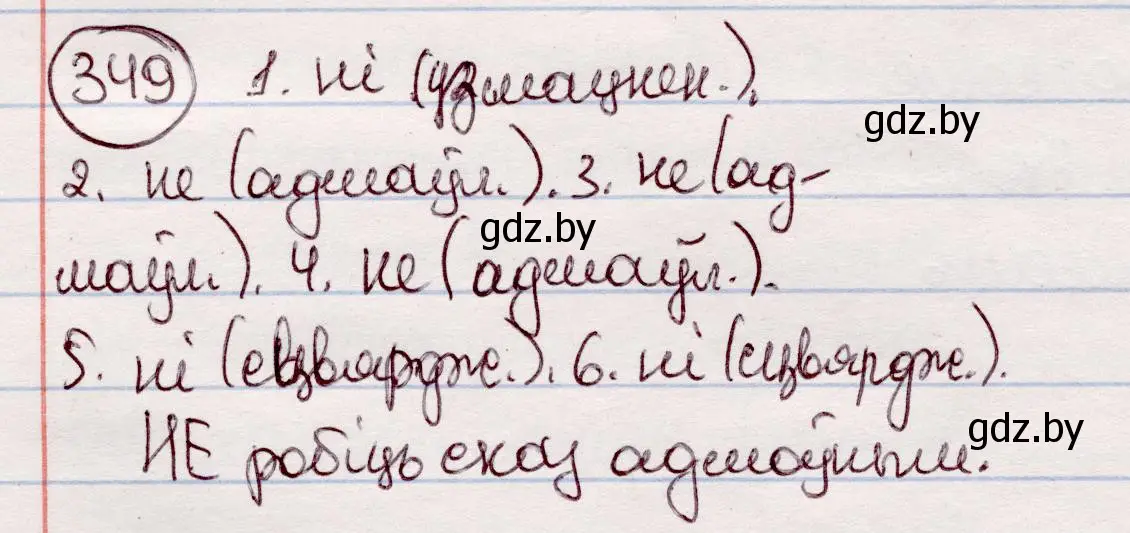 349 1. ні (узмацнен.).
gdz.by
2. не (адмаўл.). 3. не (ад-
gdz.by
маўл.). 4. не (адмаўл.).
5. ні (сцвярдж.). 6. ні (сцвярдж.).
gdz.by
НЕ робіць сказ адмоўным.